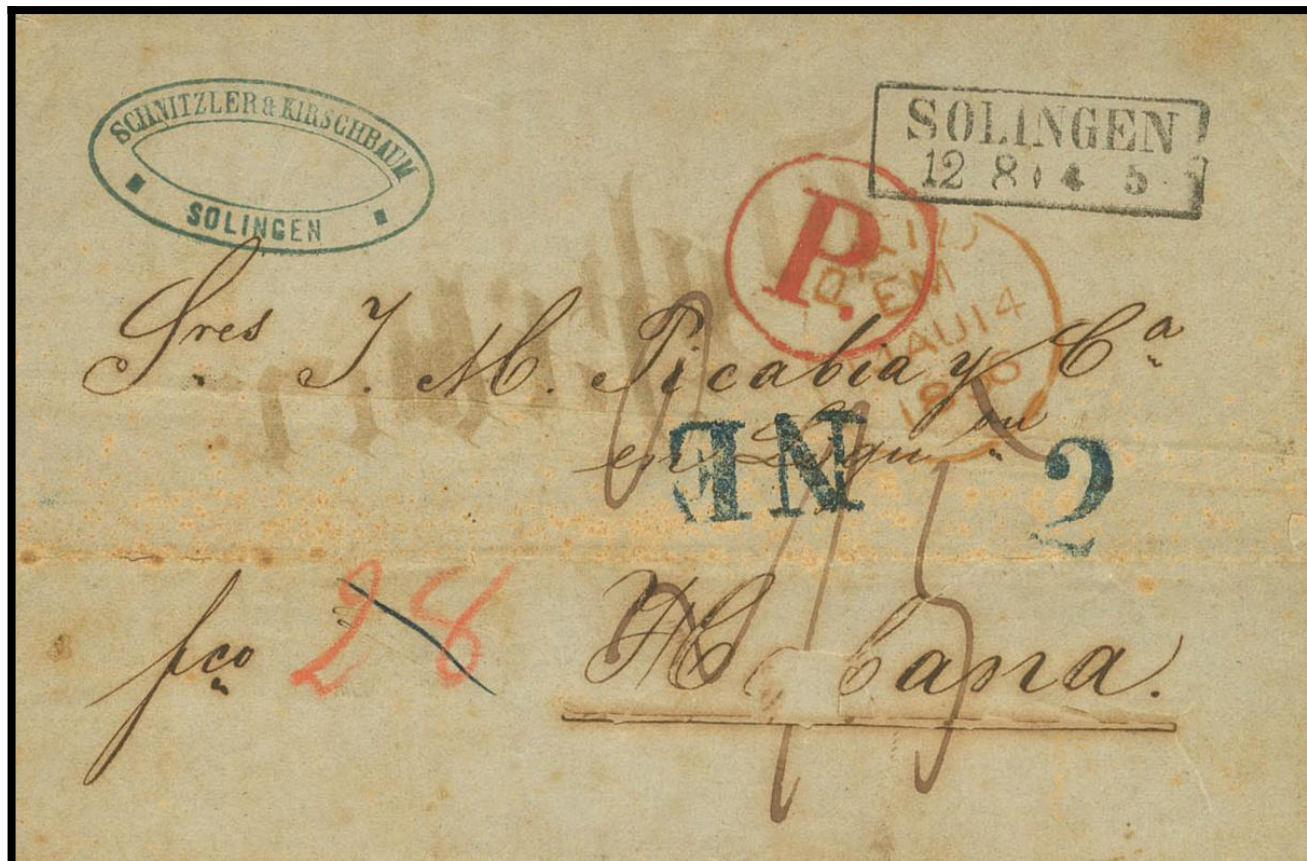 SCHNITZLER & KIRSCHBAUM
SOLINGEN
SOLINGEN
12 8 4 5
P.
EM
AU 14
Sres J. M. Picabia y Ca
en Liqu on
NE
2
fco 28 Habana.